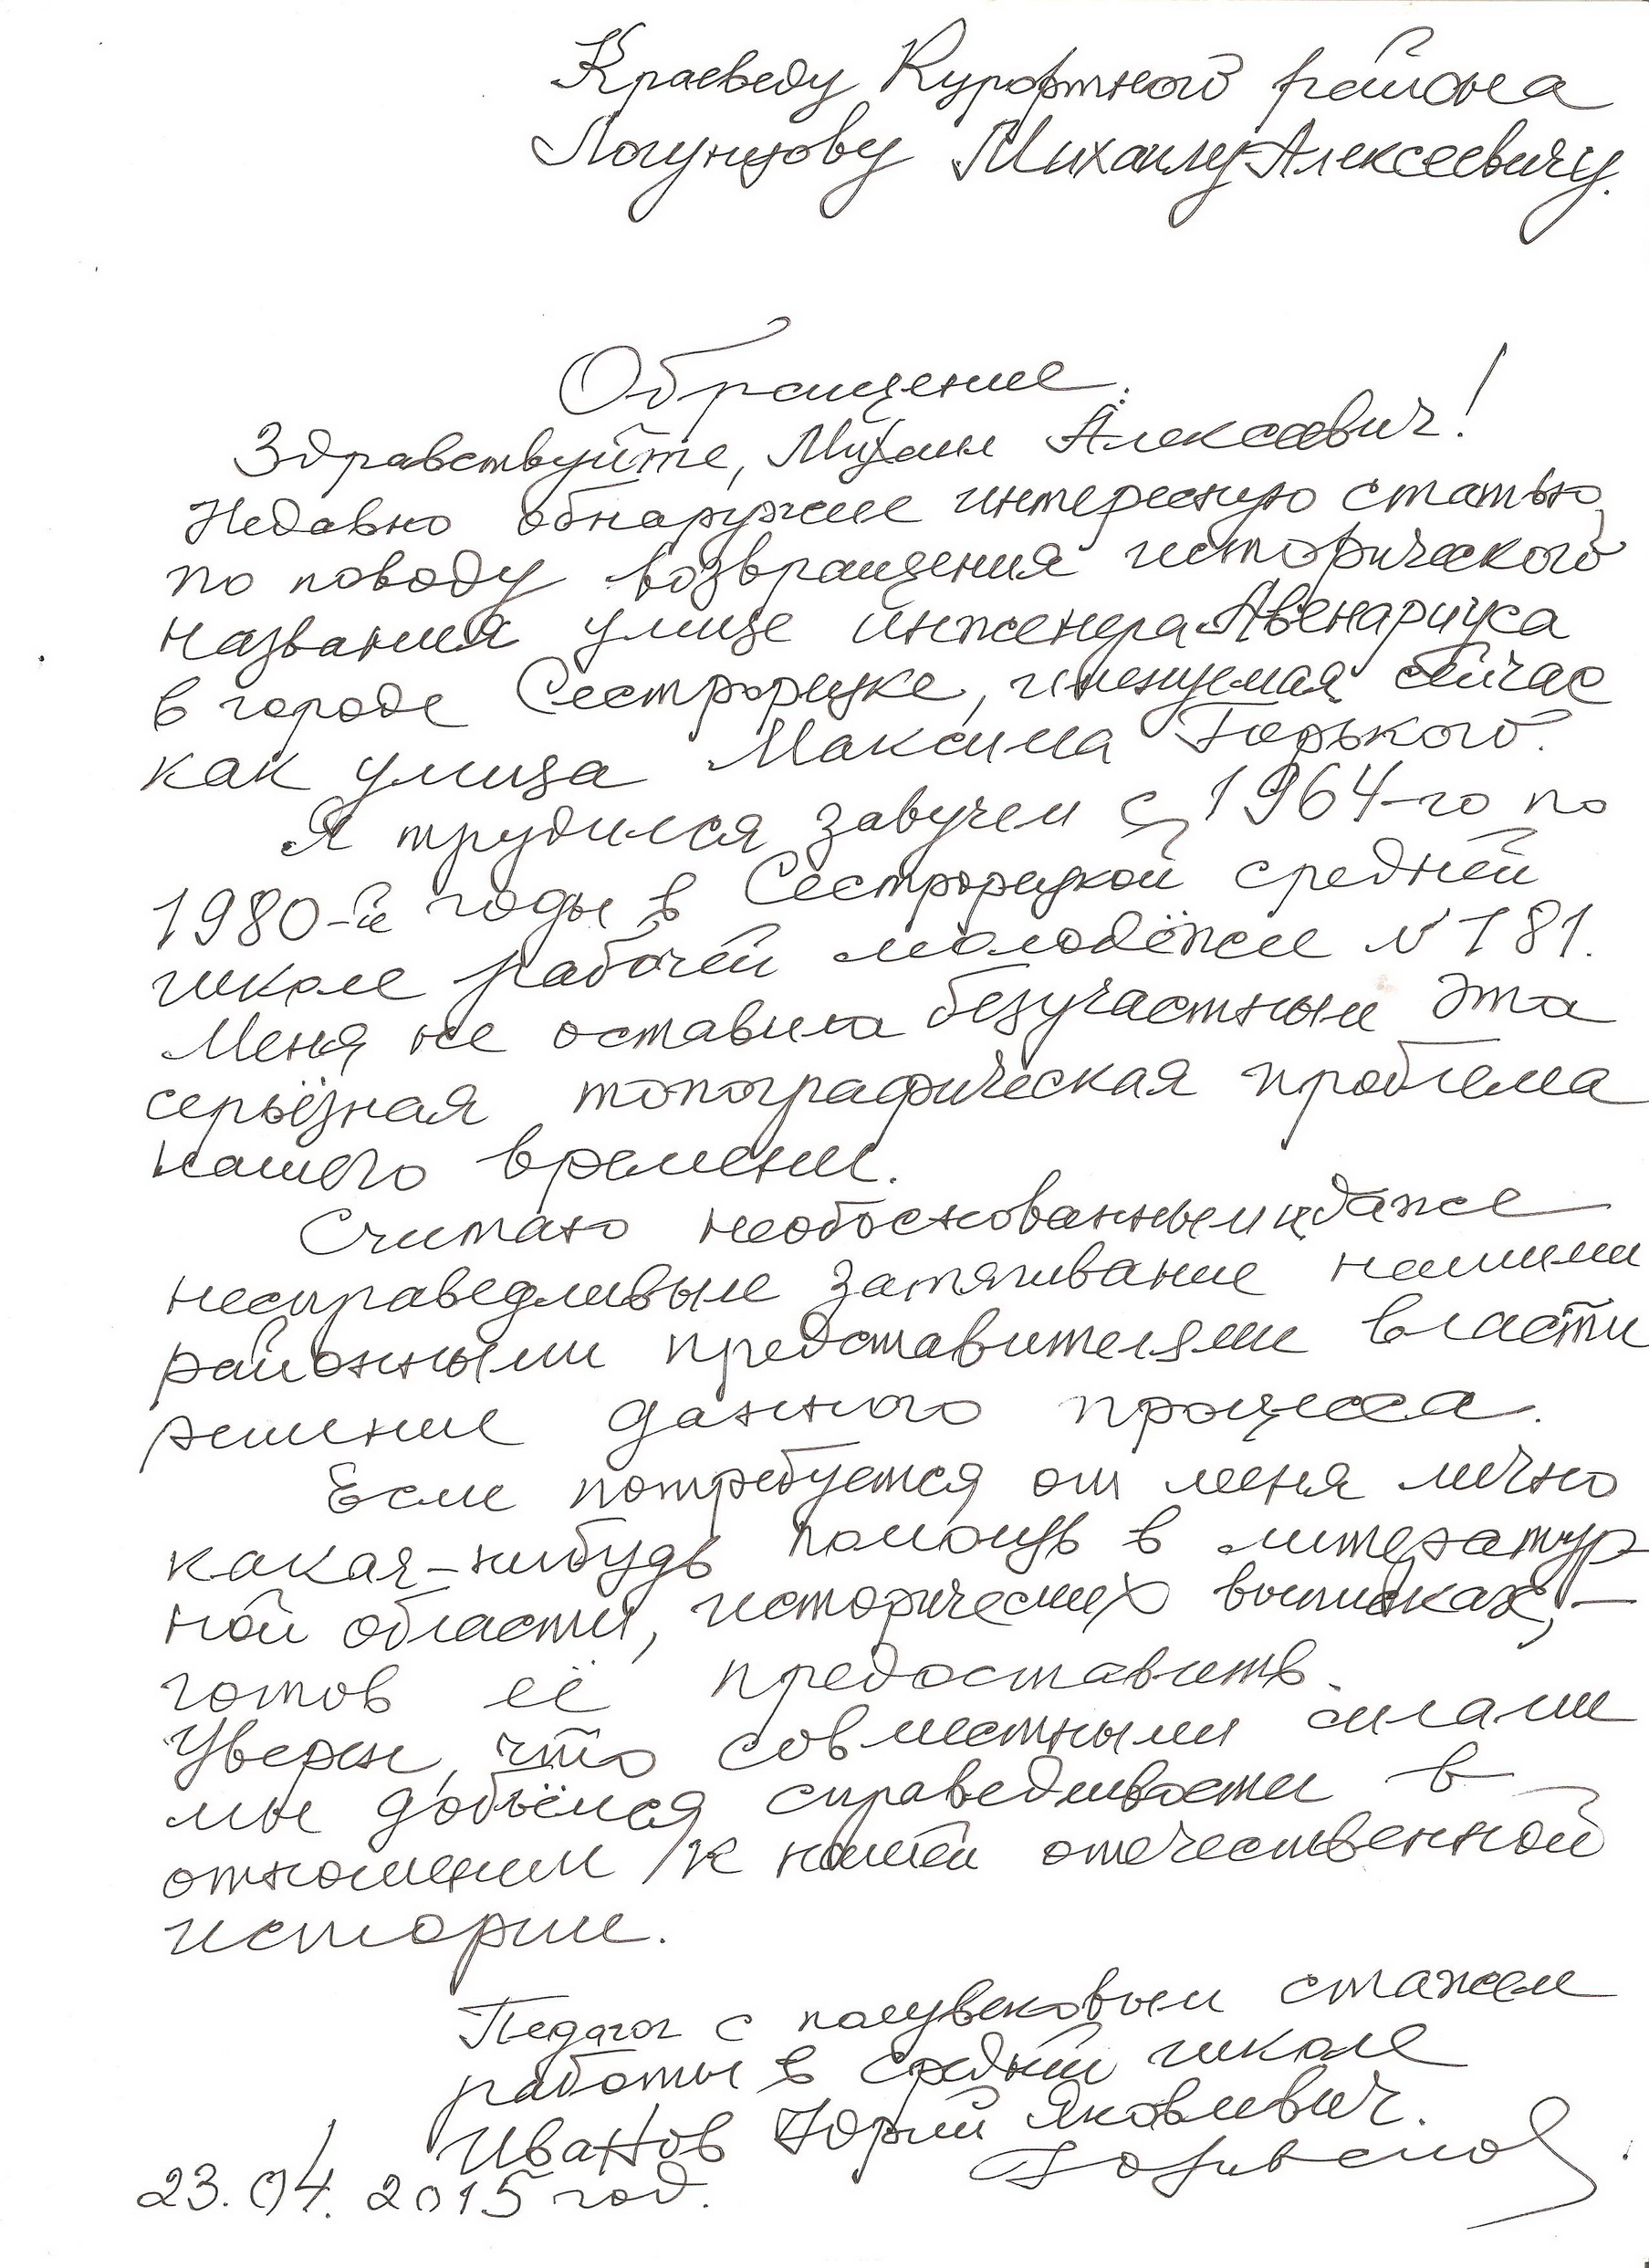 Краеведу Курортного района
Логунцову Михаилу Алексеевичу.
Обращение.
Здравствуйте, Михаил Алексеевич!
Недавно обнаружил интересную статью
по поводу возвращения исторического
названия улице инженера Авенариуса
в городе Сестрорецке, именуемая сейчас
как улица Максима Горького.
Я трудился завучем с 1964-го по
1980-й годы в Сестрорецкой средней
школе рабочей молодёжи № 181.
Меня не оставила безучастным эта
серьёзная топографическая проблема
нашего времени.
Считаю необоснованным и даже
несправедливым затягивание нашими
районными представителями власти
решение данного процесса.
Если потребуется от меня лично
какая-нибудь помощь в литератур
ной области, исторических выписках, –
готов её предоставить.
Уверен, что совместными силами
мы добьёмся справедливости в
отношении к нашей отечественной
истории.
Педагог с полувековым стажем
работы в средней школе
Иванов Юрий Яковлевич.
23.04.2015 год.